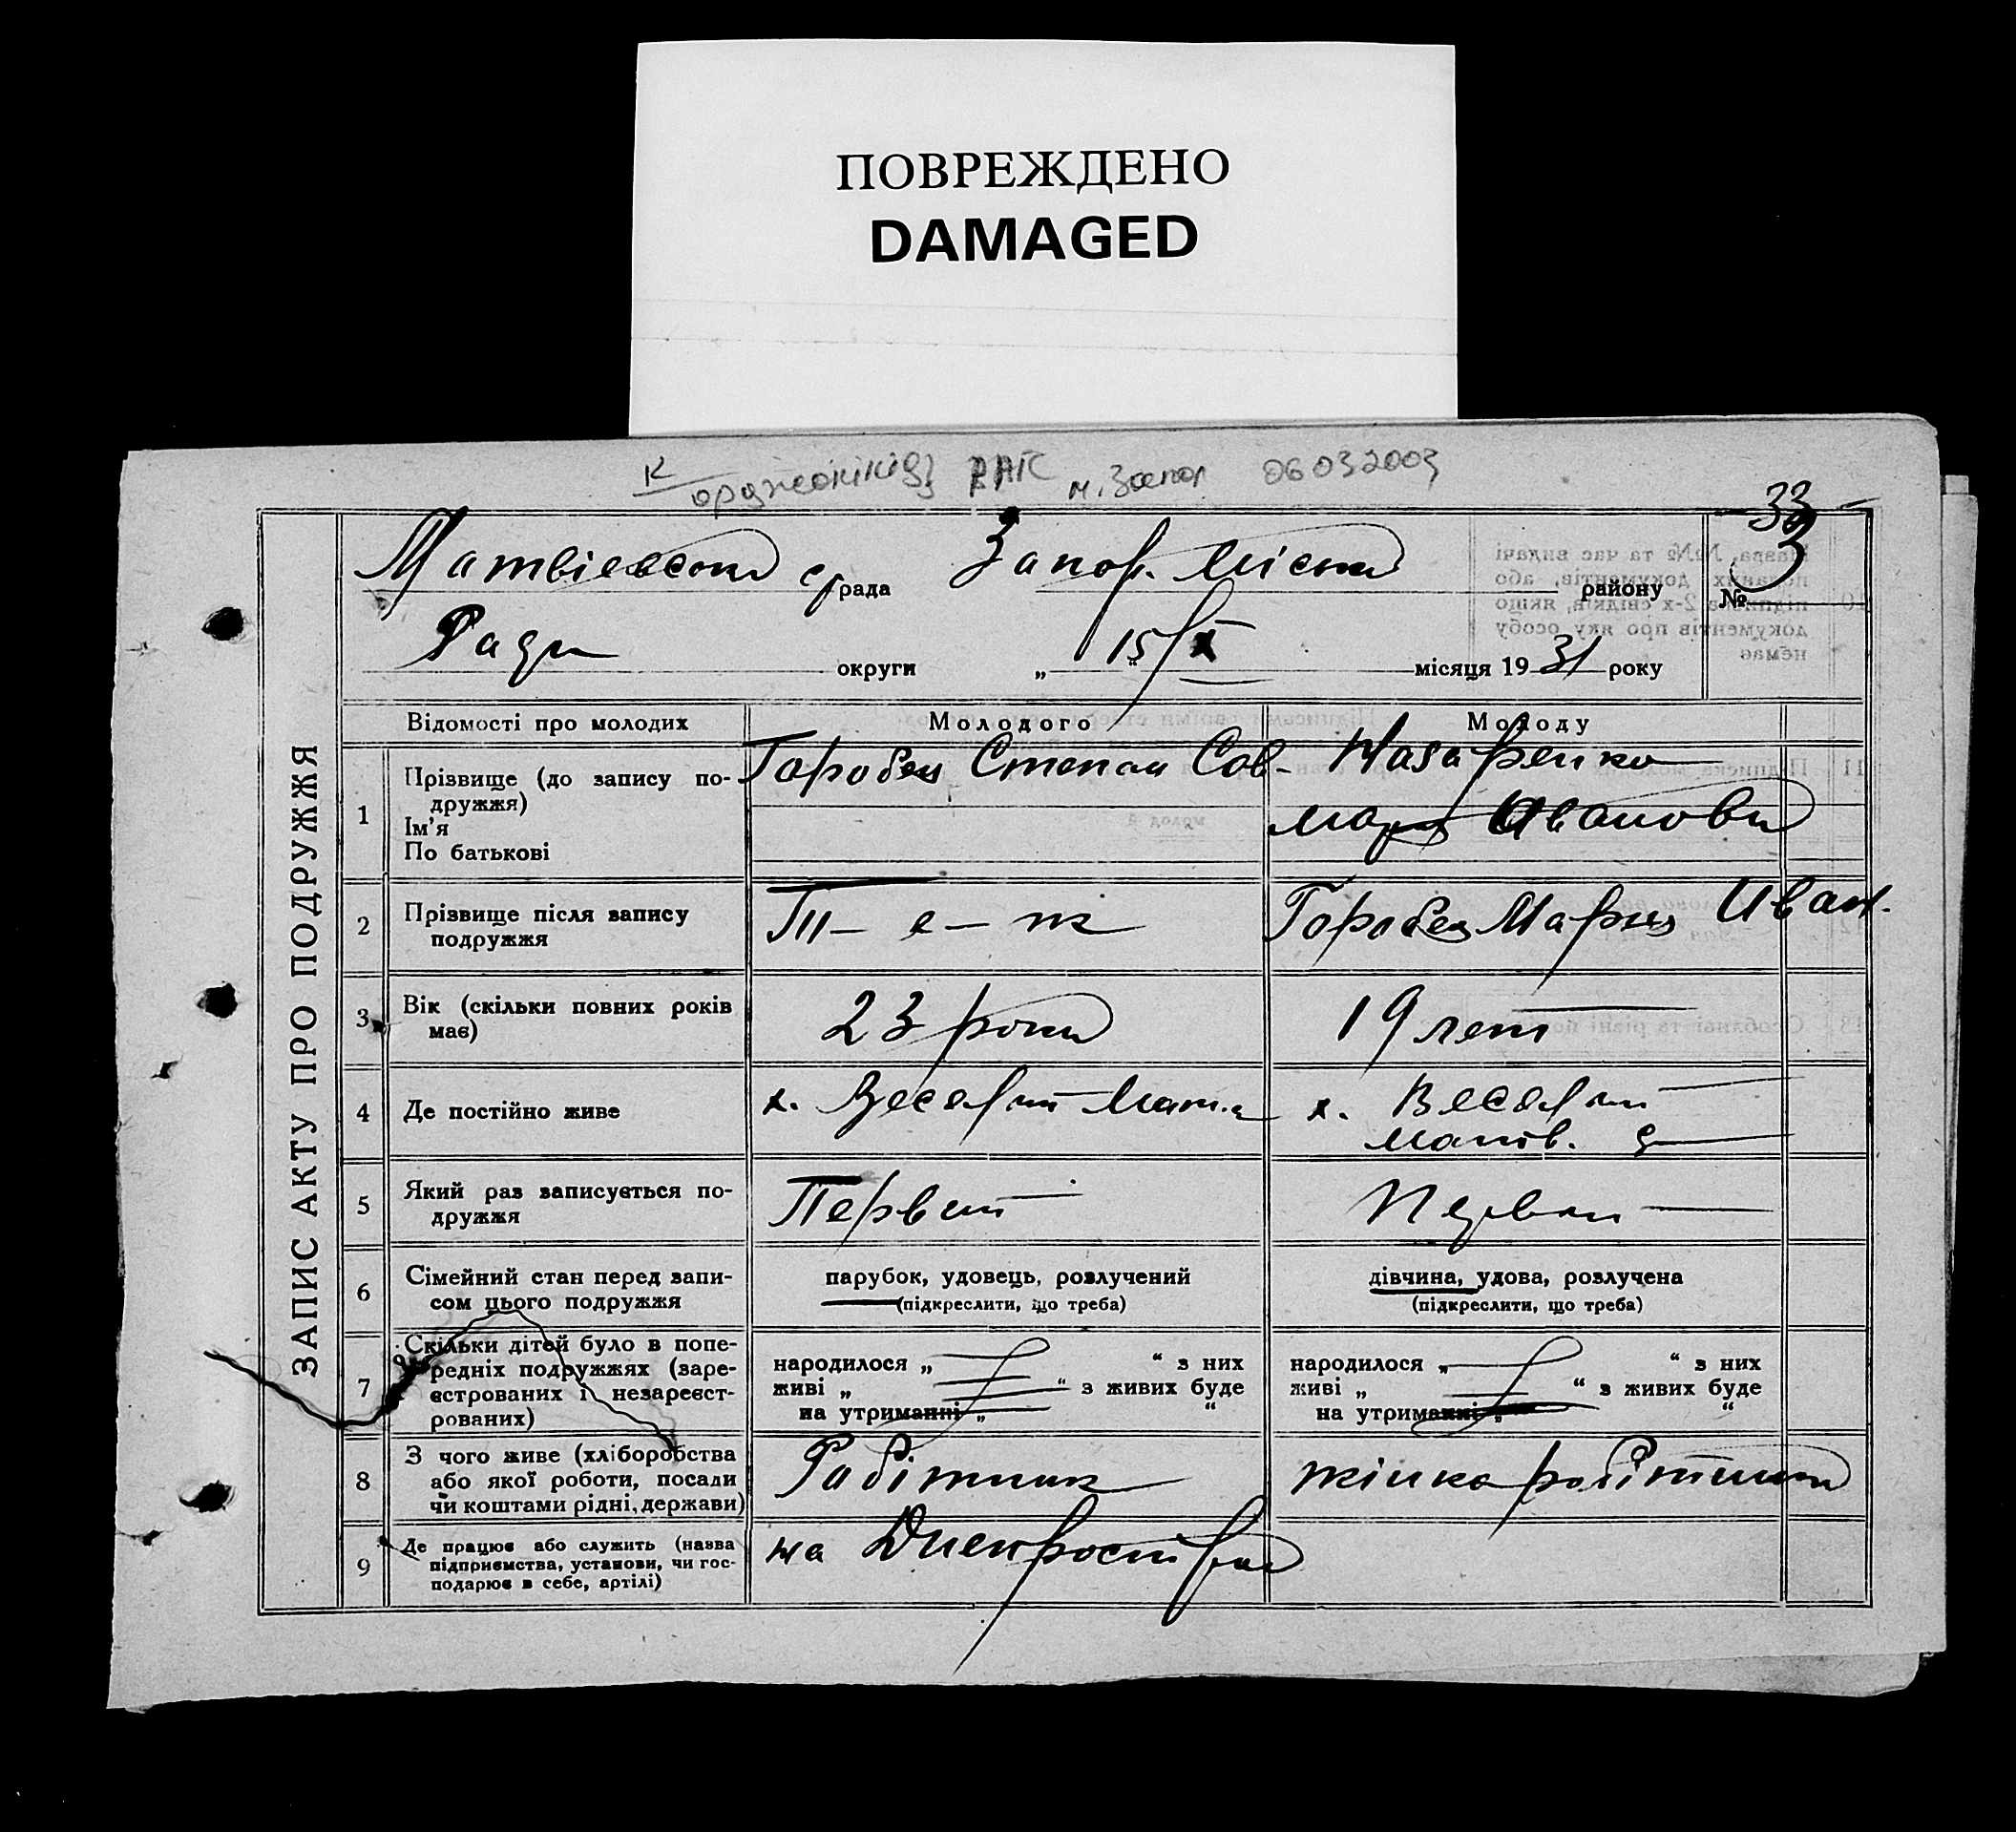 ПОВРЕЖДЕНО
DAMAGED
к орджонікідз РАГС м. Запор 06032003
33
Матвіевська с/рада Запор. Міськ району № 3
Ради округи „ 15/X місяця 1931 року
ЗАПИС АКТУ ПРО ПОДРУЖЖЯ
Відомості про молодих Молодого Молоду
1 Прізвище (до запису по-
дружжя)
Ім'я
По батькові
Горобец Степан Сав-
Назаренко
Мария Иванови
2 Прізвище після запису
подружжя
Горобец Мария Иван.
3 Вік (скільки повних років
має)
23 роки
19 лет
4 Де постійно живе
х. Веселий
х. Веселий
5 Який раз записується по-
дружжя
Первий
Первий
6 Сімейний стан перед запи-
сом цього подружжя
парубок, удовець, розлучений
(підкреслити, що треба)
дівчина, удова, розлучена
(підкреслити, що треба)
7 Скільки дітей було в попе-
редніх подружжях (заре-
єстрованих і незареєст-
рованих)
народилося „ “ з них
живі „ “ з живих буде
на утриманні „ “
народилося „ “ з них
живі „ “ з живих буде
на утриманні „ “
8 З чого живе (хліборобства
або якої роботи, посади
чи коштами рідні, держави)
Робітник
жінка робітника
9 Де працює або служить (назва
підприємства, установи, чи гос-
подарює в себе, артілі)
на Днепрострои